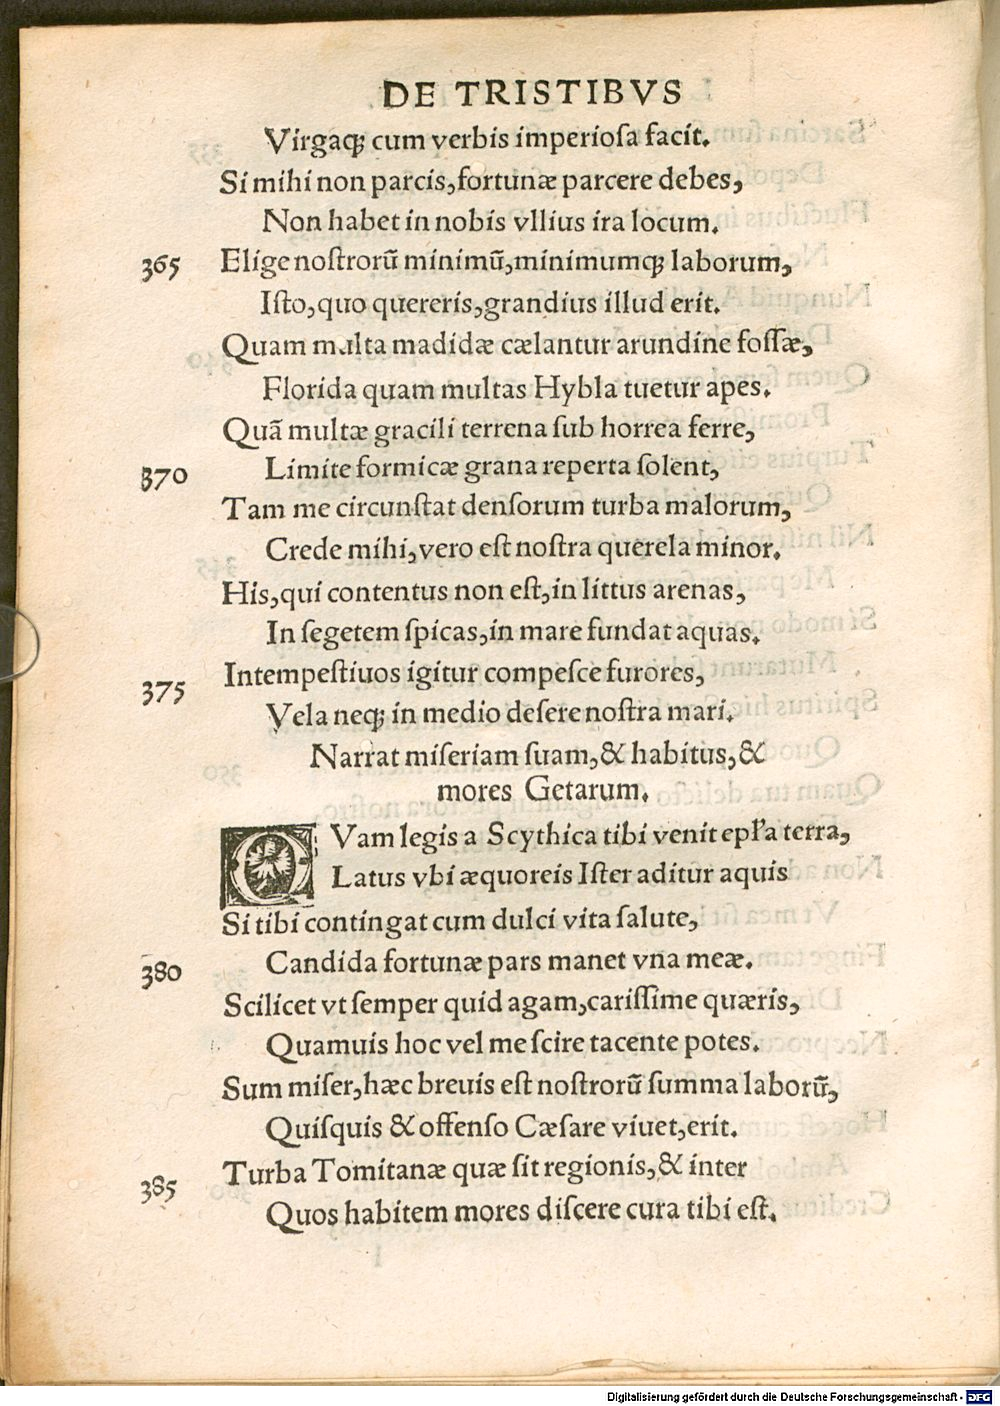 DE TRISTIBVS
Virgaqꝫ cum verbis imperiosa facit.
Si mihi non parcis, fortunæ parcere debes,
Non habet in nobis vllius ira locum.
365 Elige nostrorũ minimũ, minimumqꝫ laborum,
Isto, quo quereris, grandius illud erit.
Quam multa madidæ cælantur arundine fossæ,
Florida quam multas Hybla tuetur apes.
Quã multæ gracili terrena sub horrea ferre,
370 Limite formicæ grana reperta solent,
Tam me circunstat densorum turba malorum,
Crede mihi, vero est nostra querela minor.
His, qui contentus non est, in littus arenas,
In segetem spicas, in mare fundat aquas.
375 Intempestiuos igitur compesce furores,
Vela neqꝫ in medio desere nostra mari.
Narrat miseriam suam, & habitus, &
mores Getarum.
QVam legis a Scythica tibi venit epł'a terra,
Latus vbi æquoreis Ister aditur aquis
Si tibi contingat cum dulci vita salute,
380 Candida fortunæ pars manet vna meæ.
Scilicet vt semper quid agam, carissime quæris,
Quamuis hoc vel me scire tacente potes.
Sum miser, hæc breuis est nostrorũ summa laborũ,
Quisquis & offenso Cæsare viuet, erit.
385 Turba Tomitanæ quæ sit regionis, & inter
Quos habitem mores discere cura tibi est.
Digitalisierung gefördert durch die Deutsche Forschungsgemeinschaft - DFG